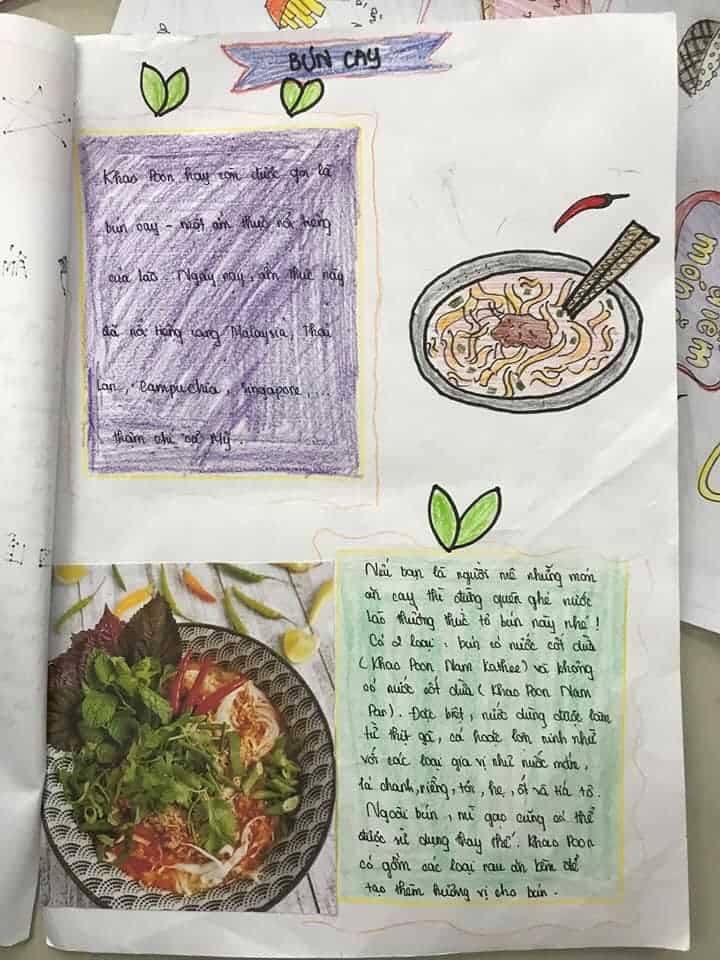 BÚN CAY
Khao Poon hay còn được gọi là
bún cay - một ẩm thực nổi tiếng
của lào. Ngày nay, ẩm thực này
đã nổi tiếng sang Malaysia, Thái
Lan, Campuchia, Singapore,...
thậm chí cả Mỹ.
Nếu bạn là người mê những món
ăn cay thì đừng quên ghé nước
lào thưởng thức tô bún này nhé!
Có 2 loại: bún có nước cốt dừa
(Khao Poon Nam Kathee) và không
có nước cốt dừa (Khao Poon Nam
Par). Đặc biệt, nước dùng được làm
từ thịt gà, cá hoặc lợn ninh nhừ
với các loại gia vị như nước mắm,
lá chanh, riềng, tỏi, hẹ, ớt và tía tô.
Ngoài bún, mì gạo cũng có thể
được sử dụng thay thế. Khao Poon
có gồm các loại rau ăn kèm để
tạo thêm hương vị cho bún.
MÃ
món